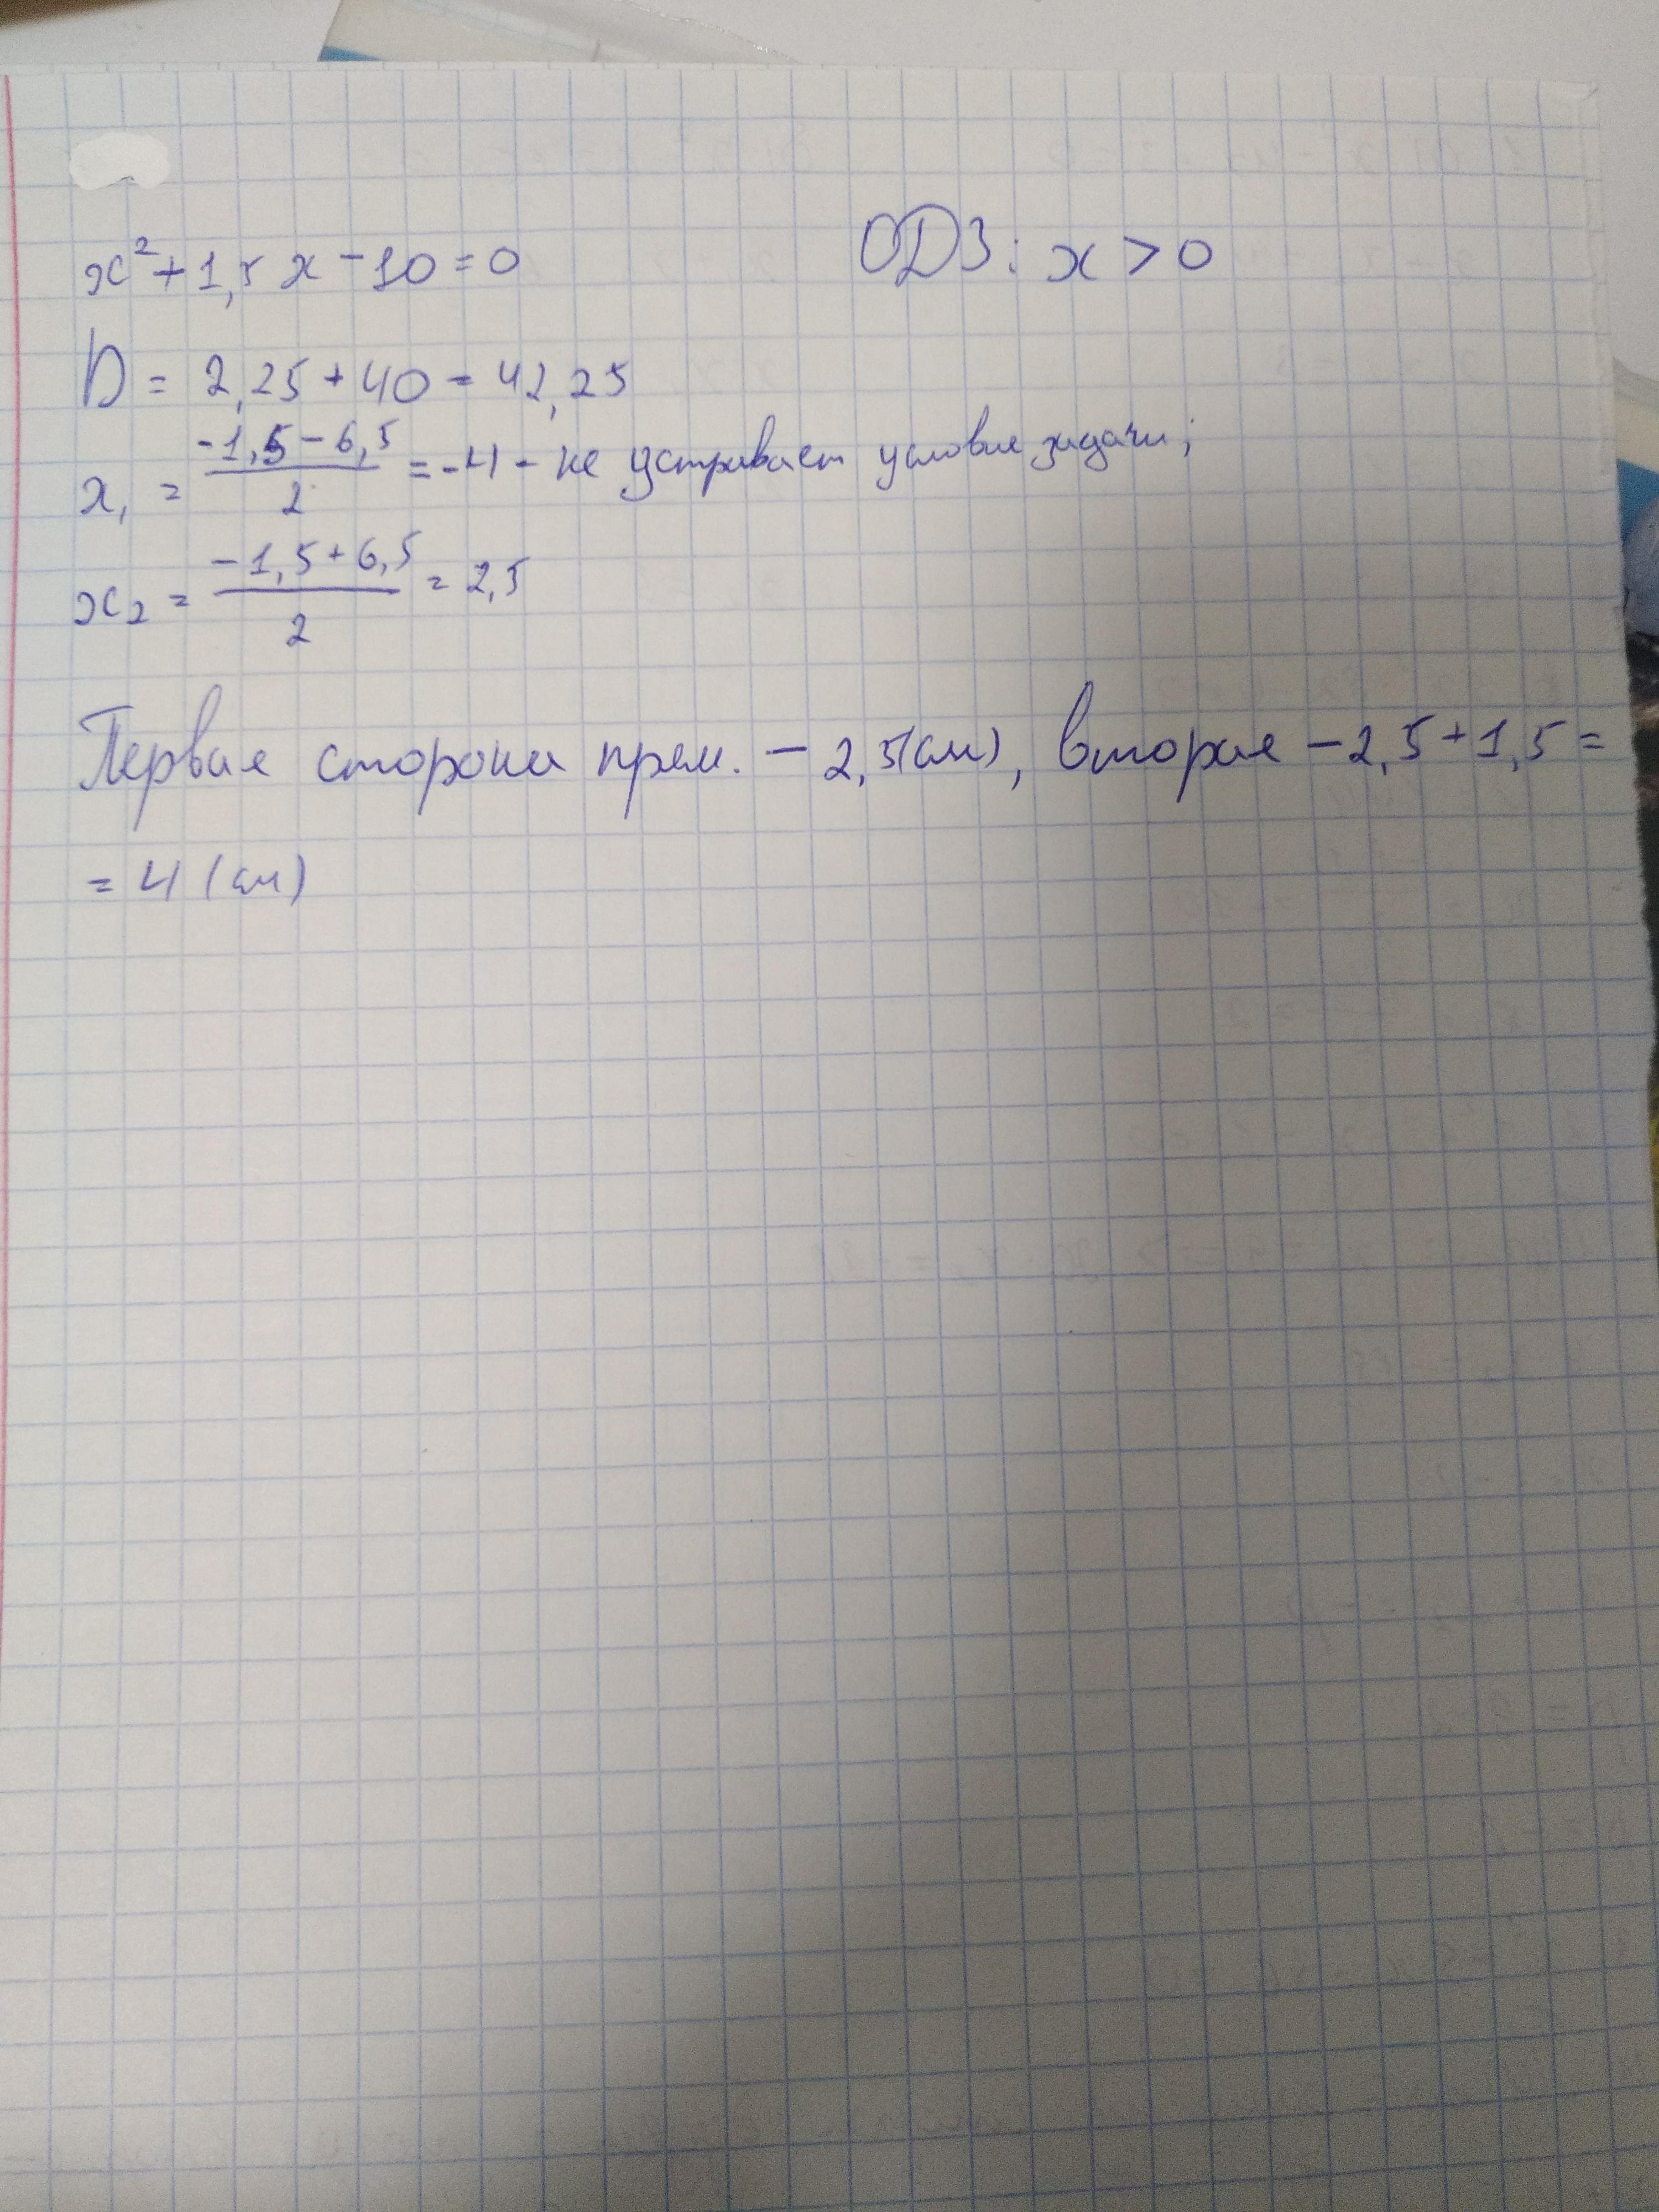 x² + 1,5x - 10 = 0
ОДЗ: x > 0
D = 2,25 + 40 = 42,25
x₁ = (-1,5 - 6,5)/2 = -4 - не устраивает условие задачи;
x₂ = (-1,5 + 6,5)/2 = 2,5
Первая сторона прям. - 2,5(см), вторая - 2,5 + 1,5 =
= 4 (см)